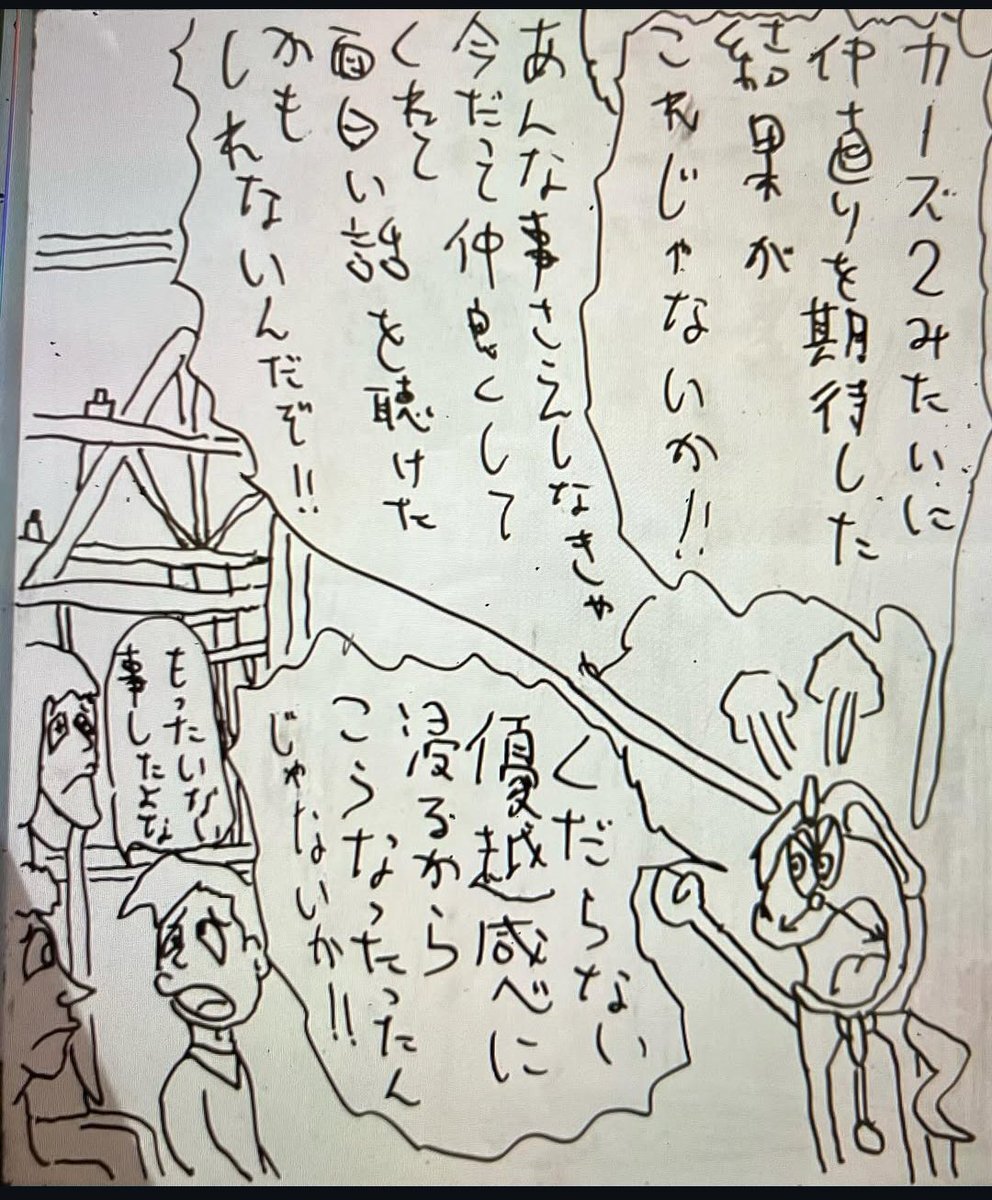 カーズ2みたいに
仲直りを期待した
結果が
これじゃないか!!
あんな事さえしなきゃ
今だって仲良くして
くれて
面白い話を聴けた
かも
しれないんだぞ!!
くだらない
優越感べに
浸るから
こうなったったん
じゃないか!!
もったいない
事したよな